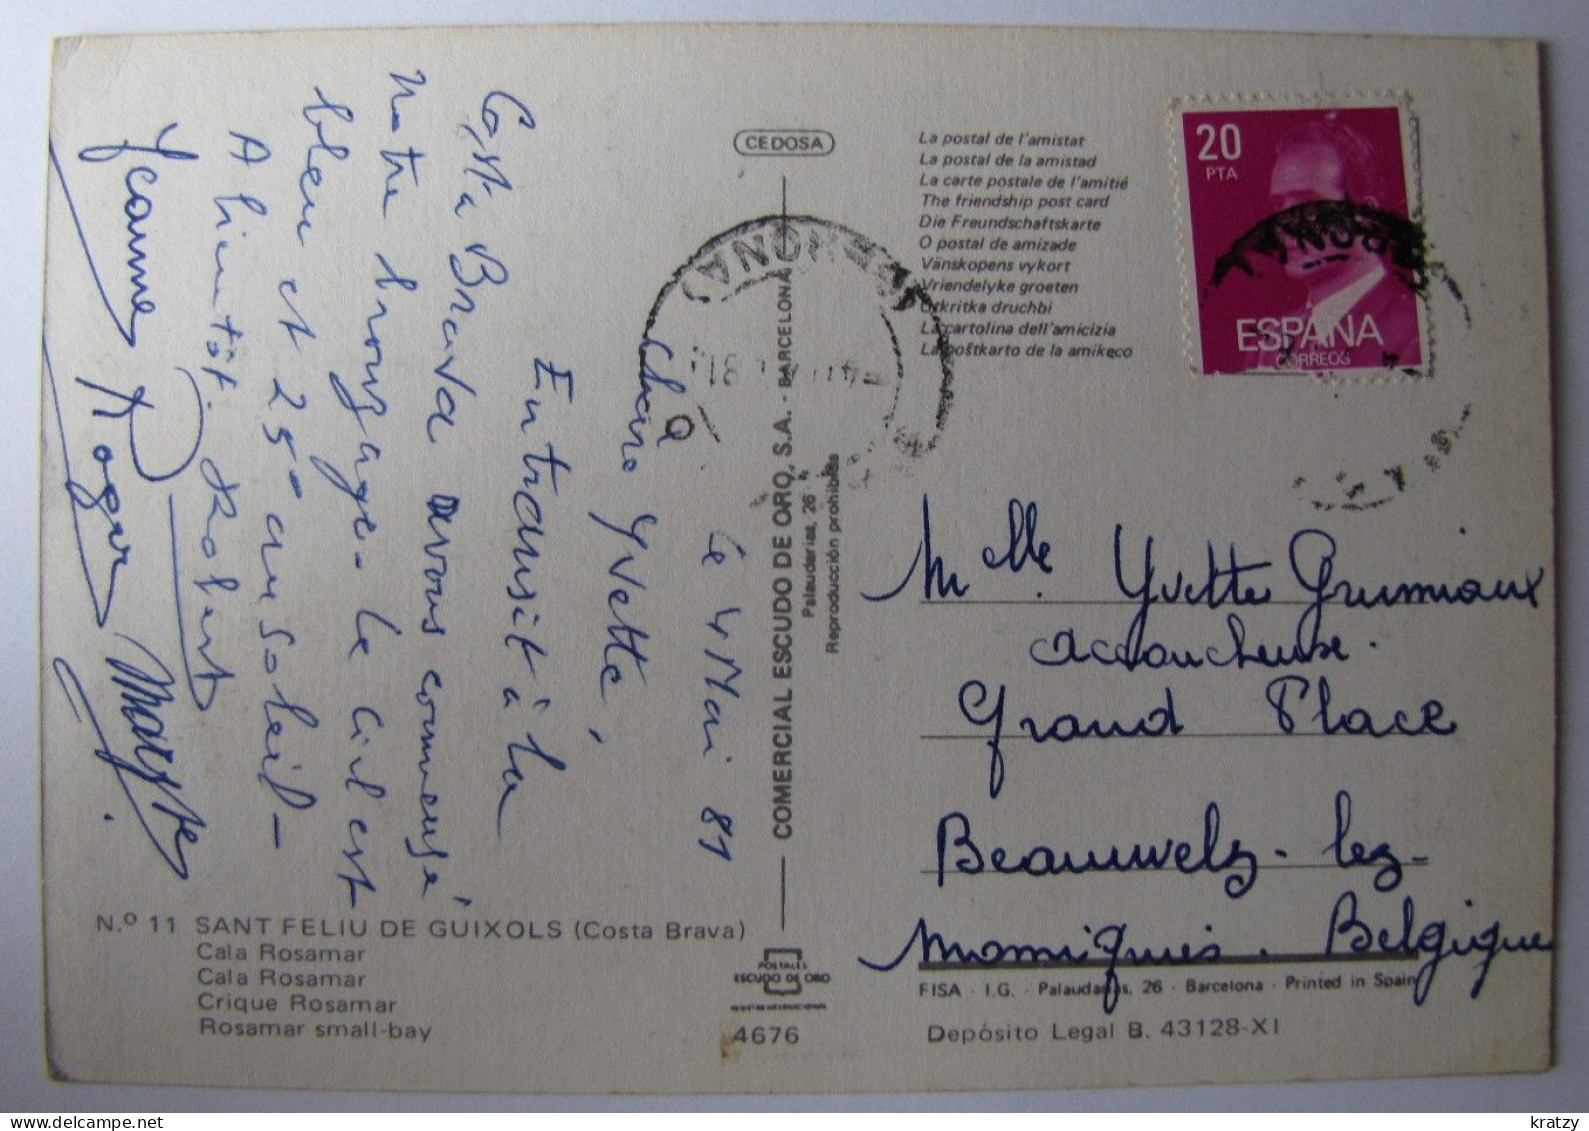 Le 4 Mai 81
Chère Yvette,
En transit à la
Costa Brava nous avons commencé
notre bronzage - le ciel est
bleu et 25° au soleil -
A bientôt. Robert
Jeanne Roger
CEDOSA
COMERCIAL ESCUDO DE ORO, S.A. - BARCELONA
Palaudarias, 26
Reproducción prohibida
La postal de l'amistat
La postal de la amistad
La carte postale de l'amitié
The friendship post card
Die Freundschaftskarte
O postal de amizade
Vänskopens vykort
Vriendelyke groeten
Otkritka druchbi
La cartolina dell'amicizia
La poŝtkarto de la amikeco
20
PTA
ESPAÑA
CORREOS
Melle. Yvette Grumiaux
accoucheuse.
Grand Place
Beauwelz - lez -
Momignies. Belgique
N.º 11 SANT FELIU DE GUIXOLS (Costa Brava)
Cala Rosamar
Cala Rosamar
Crique Rosamar
Rosamar small-bay
POSTALES
ESCUDO DE ORO
4676
FISA - I.G. - Palaudarias, 26 - Barcelona - Printed in Spain
Depósito Legal B. 43128-XI
www.delcampe.net
kratzy